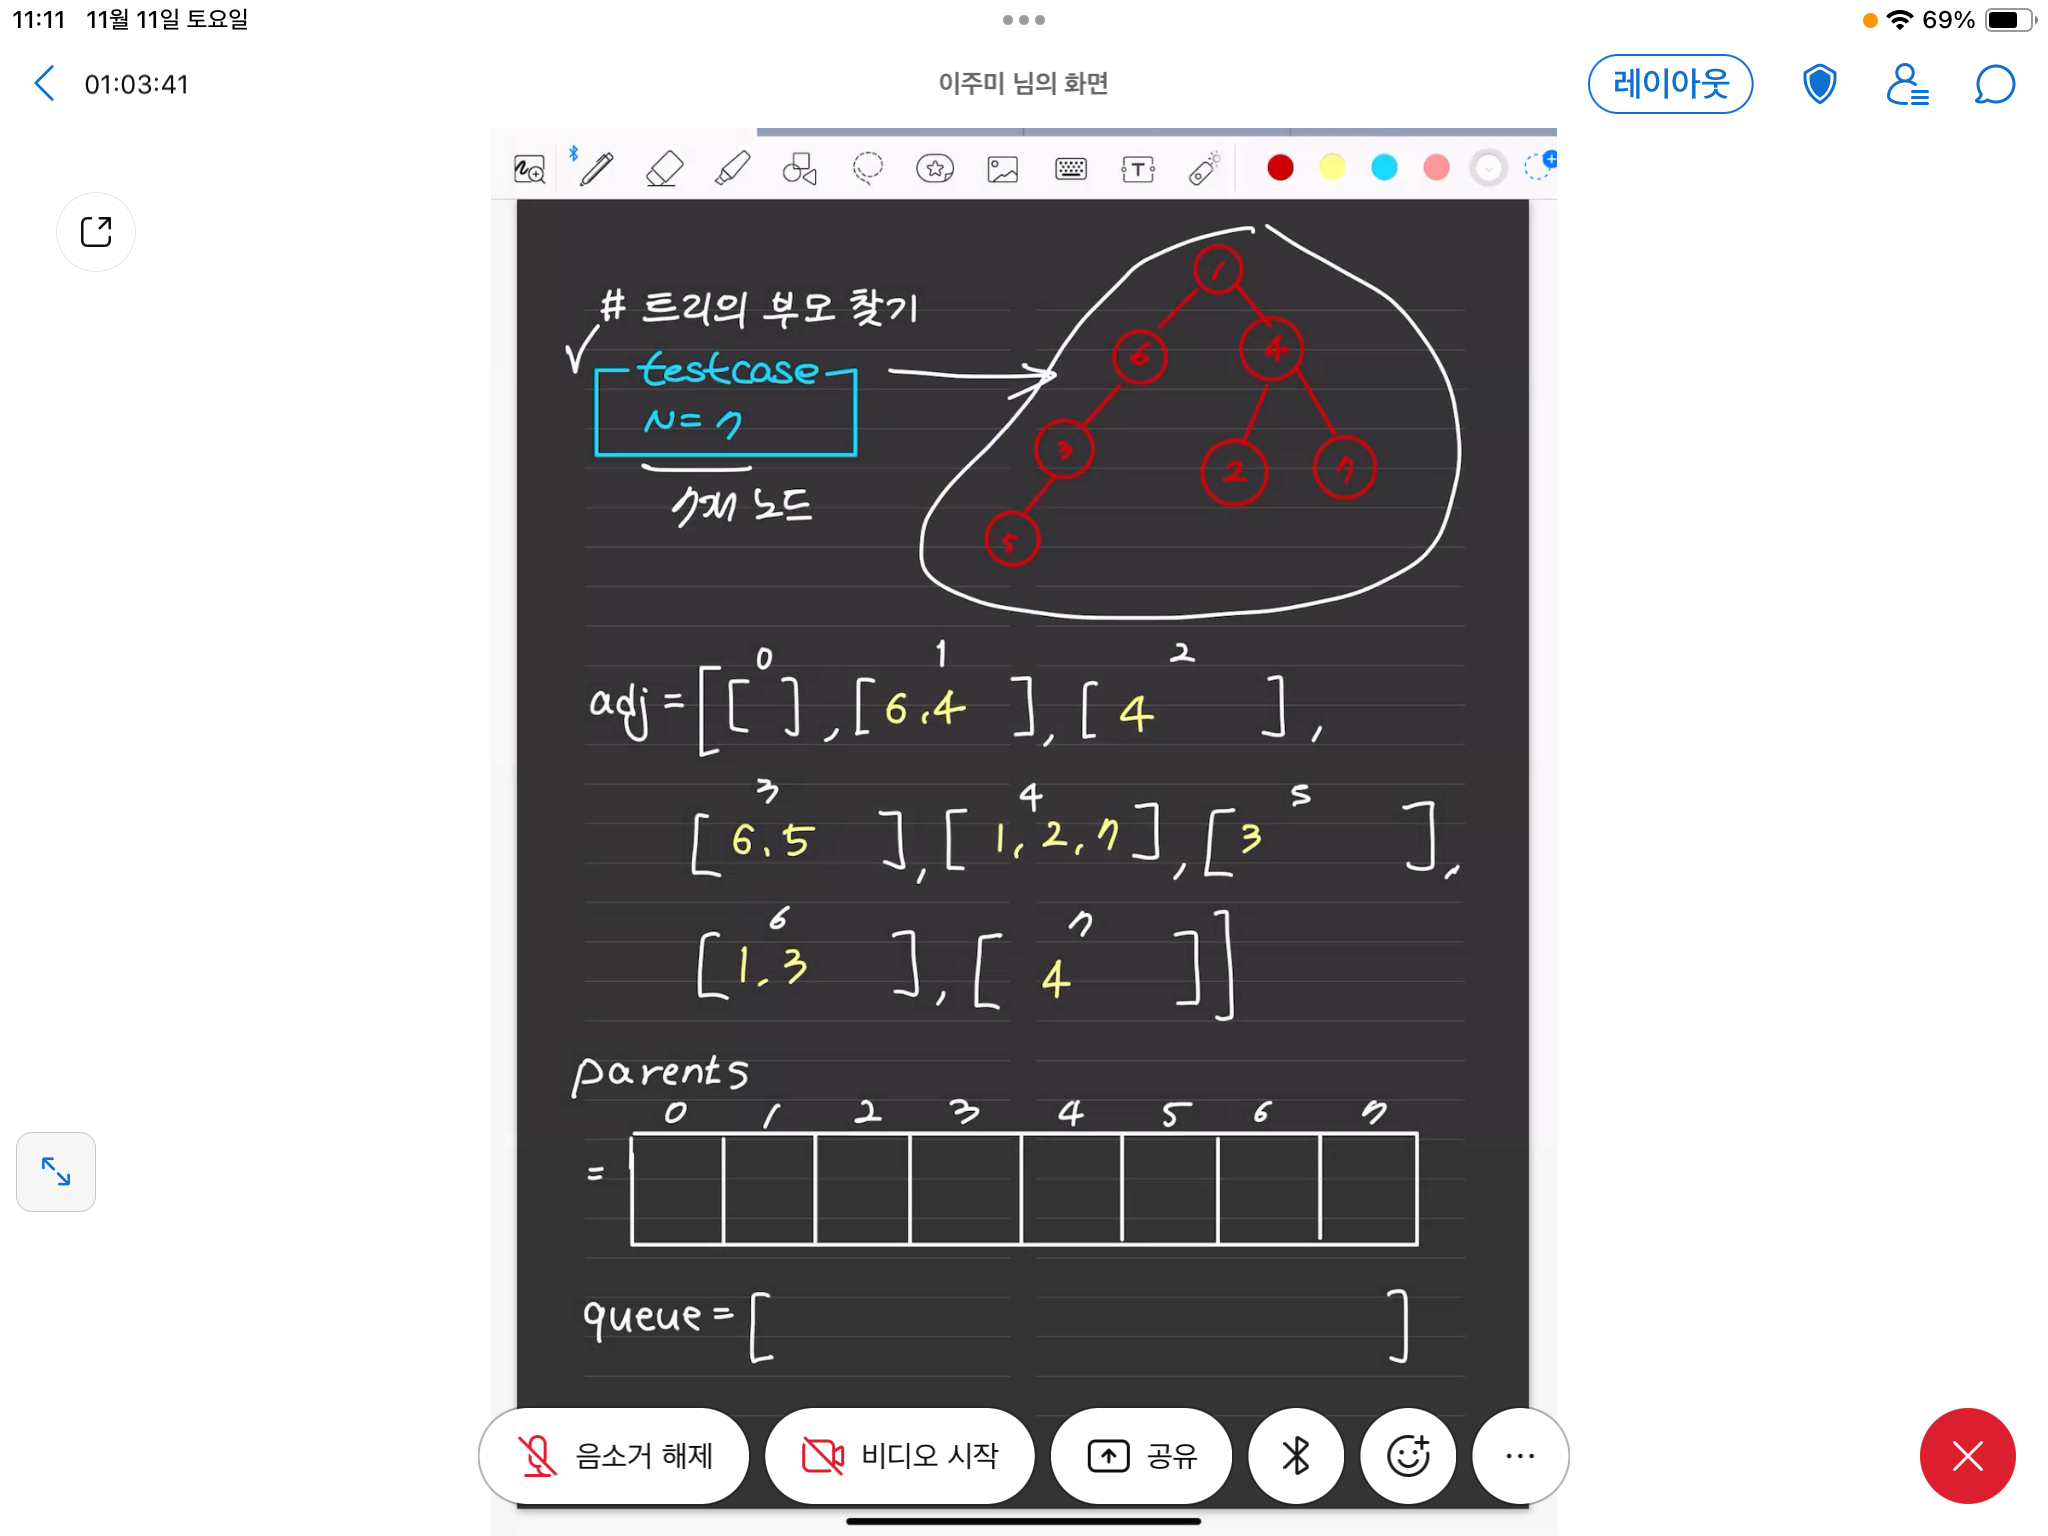 11:11 11월 11일 토요일
69%
01:03:41
이주미 님의 화면
레이아웃
T
# 트리의 부모 찾기
testcase
N=7
7개 노드
1
6 4
3 2 7
5
0 1 2
adj = [[ ], [6,4 ], [ 4 ],
3 4 5
[ 6,5 ], [ 1,2,7 ], [ 3 ],
6 7
[ 1,3 ], [ 4 ]]
parents
0 1 2 3 4 5 6 7
=
queue = [ ]
음소거 해제
비디오 시작
공유